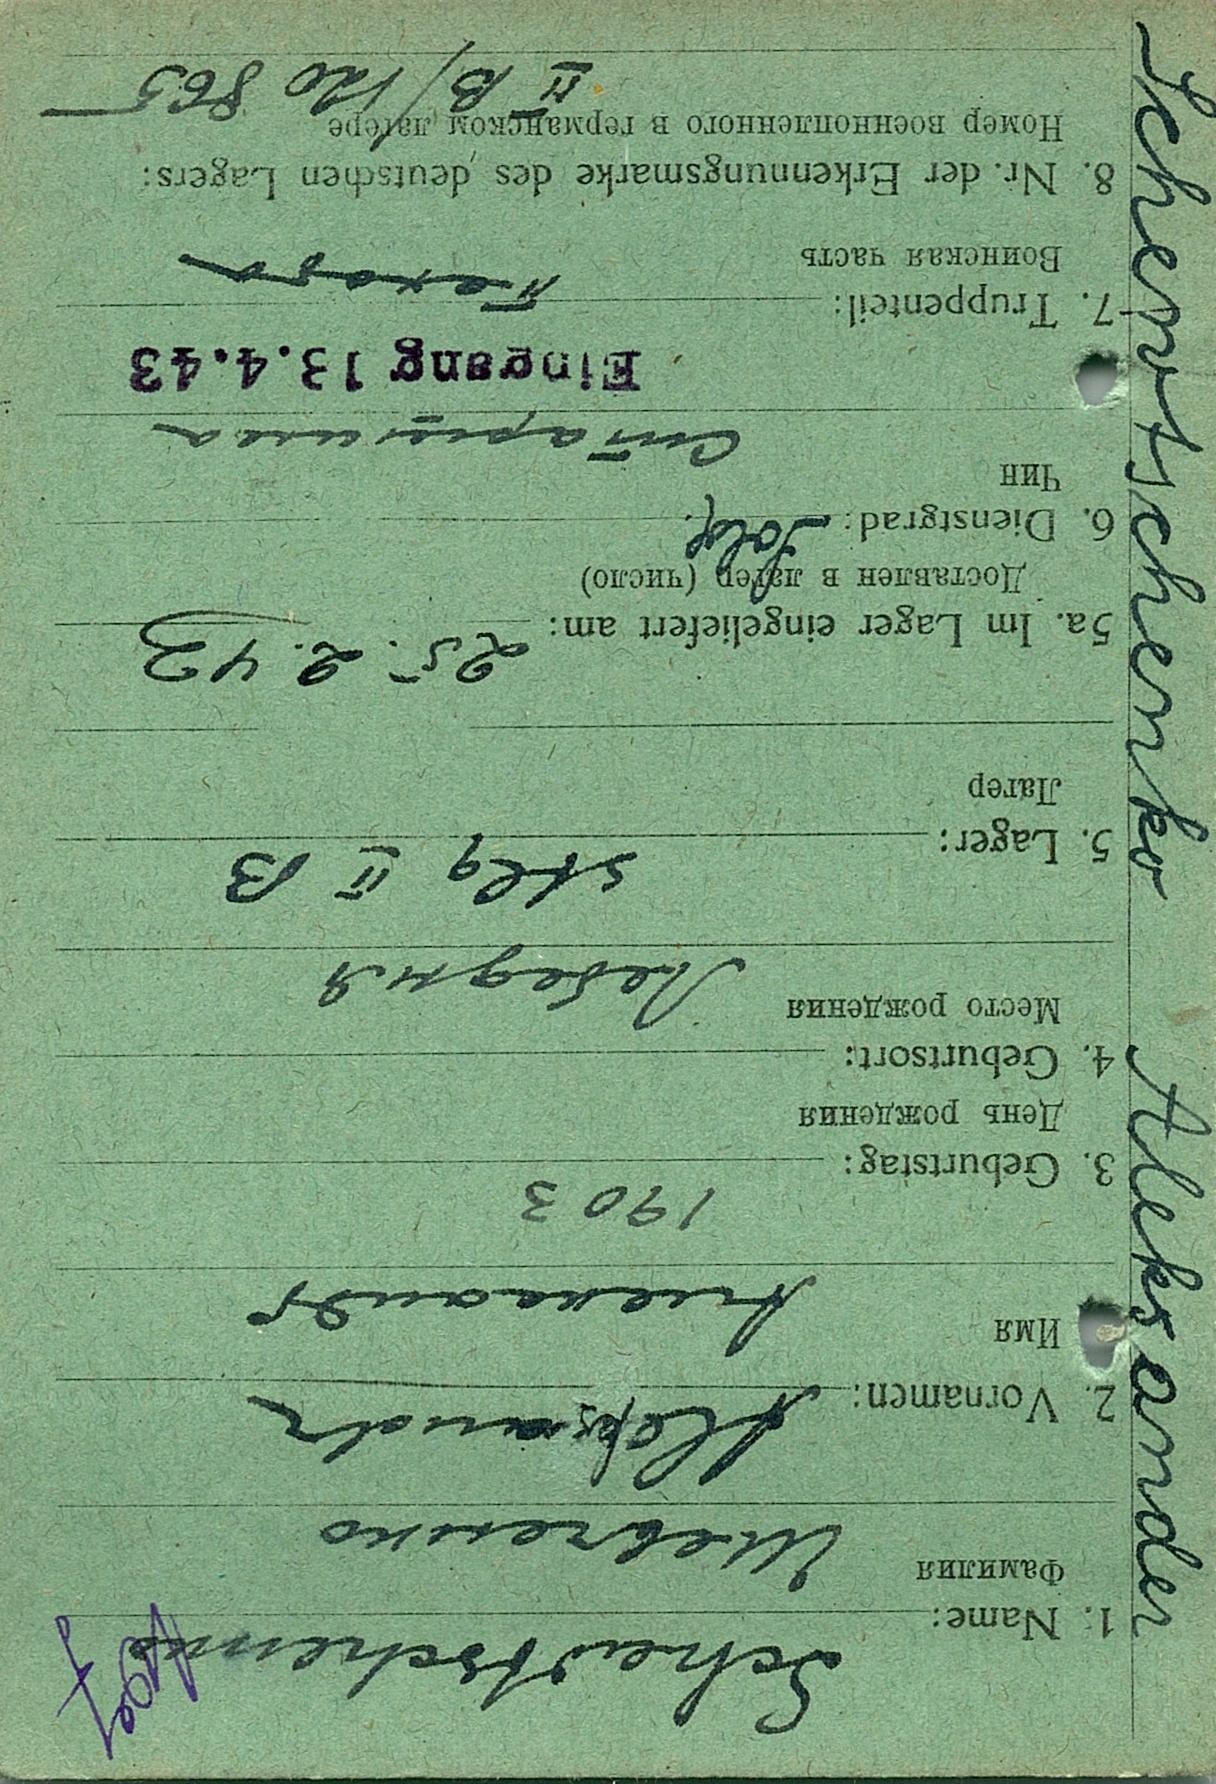 Schewtschenko
1. Name:
Фамилия
Шевченко
2. Vornamen: Aleksandr
Имя
Александр
1903
3. Geburtstag:
День рождения
4. Geburtsort:
Место рождения
Лебедня
Stlg II B
5. Lager:
Лагер
5a. Im Lager eingeliefert am: 25.2.43
Доставлен в лагер (число)
6. Dienstgrad: Sold.
Чин
старшина
Eingang 13.4.43
7. Truppenteil: Пехота
Воинская часть
8. Nr. der Erkennungsmarke des deutschen Lagers:
Номер военнопленного в германском лагере
II B/120 865
Schewtschenko Aleksander